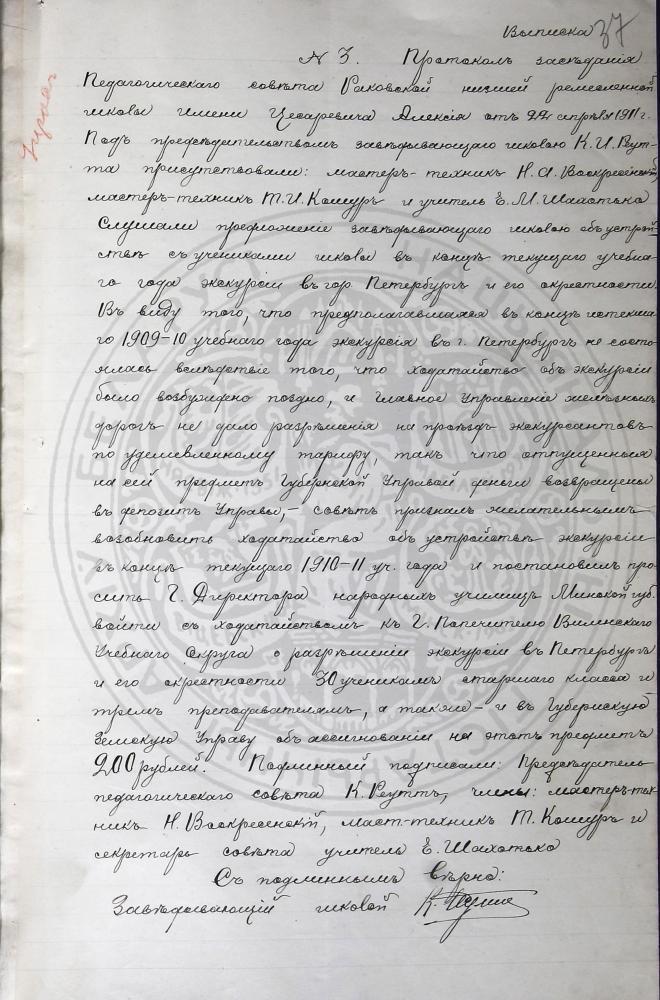 Выписка 37
№ 3. Протоколъ засѣданія
Педагогическаго совѣта Раковской низшей ремесленной
школы имени Цесаревича Алексія отъ 22 апрѣля 1911 г.
Подъ предсѣдательствомъ завѣдывающаго школою К. И. Реут-
та присутствовали: мастеръ-техникъ Н. А. Воскресенскій,
мастеръ-техникъ Т. И. Кошуръ и учитель Е. М. Шахотько
Слушали предложеніе завѣдывающаго школою объ устрой-
ствѣ съ учениками школы въ концѣ текущаго учебна-
го года экскурсіи въ гор. Петербургъ и его окрестности.
Въ виду того, что предполагавшаяся въ концѣ истекша-
го 1909-10 учебнаго года экскурсія въ г. Петербургъ не состо-
ялась вслѣдствіе того, что ходатайство объ экскурсіи
было возбуждено поздно, и Главное Управленіе желѣзныхъ
дорогъ не дало разрѣшенія на проѣздъ экскурсантовъ
по удешевленному тарифу, такъ что отпущенныя
на сей предметъ Губернской Управой деньги возвращены
въ депозитъ Управы, – совѣтъ призналъ желательнымъ
возобновить ходатайство объ устройствѣ экскурсіи
въ концѣ текущаго 1910-11 уч. года и постановилъ про-
сить Г. Директора народныхъ училищъ Минской губ.
войти съ ходатайствомъ къ Г. Попечителю Виленскаго
Учебнаго Округа о разрѣшеніи экскурсіи въ Петербургъ
и его окрестности 30 ученикамъ старшаго класса и
тремъ преподавателямъ, а также – и въ Губернскую
Земскую Управу объ ассигнованіи на этотъ предметъ
200 рублей. Подлинный подписали: Предсѣдатель
педагогическаго совѣта К. Реуттъ, члены: мастеръ-тех-
никъ Н. Воскресенскій, маст-техникъ Т. Кошуръ и
секретарь совѣта учитель Е. Шахотько
Съ подлиннымъ вѣрно:
Завѣдывающій школой К. Реуттъ